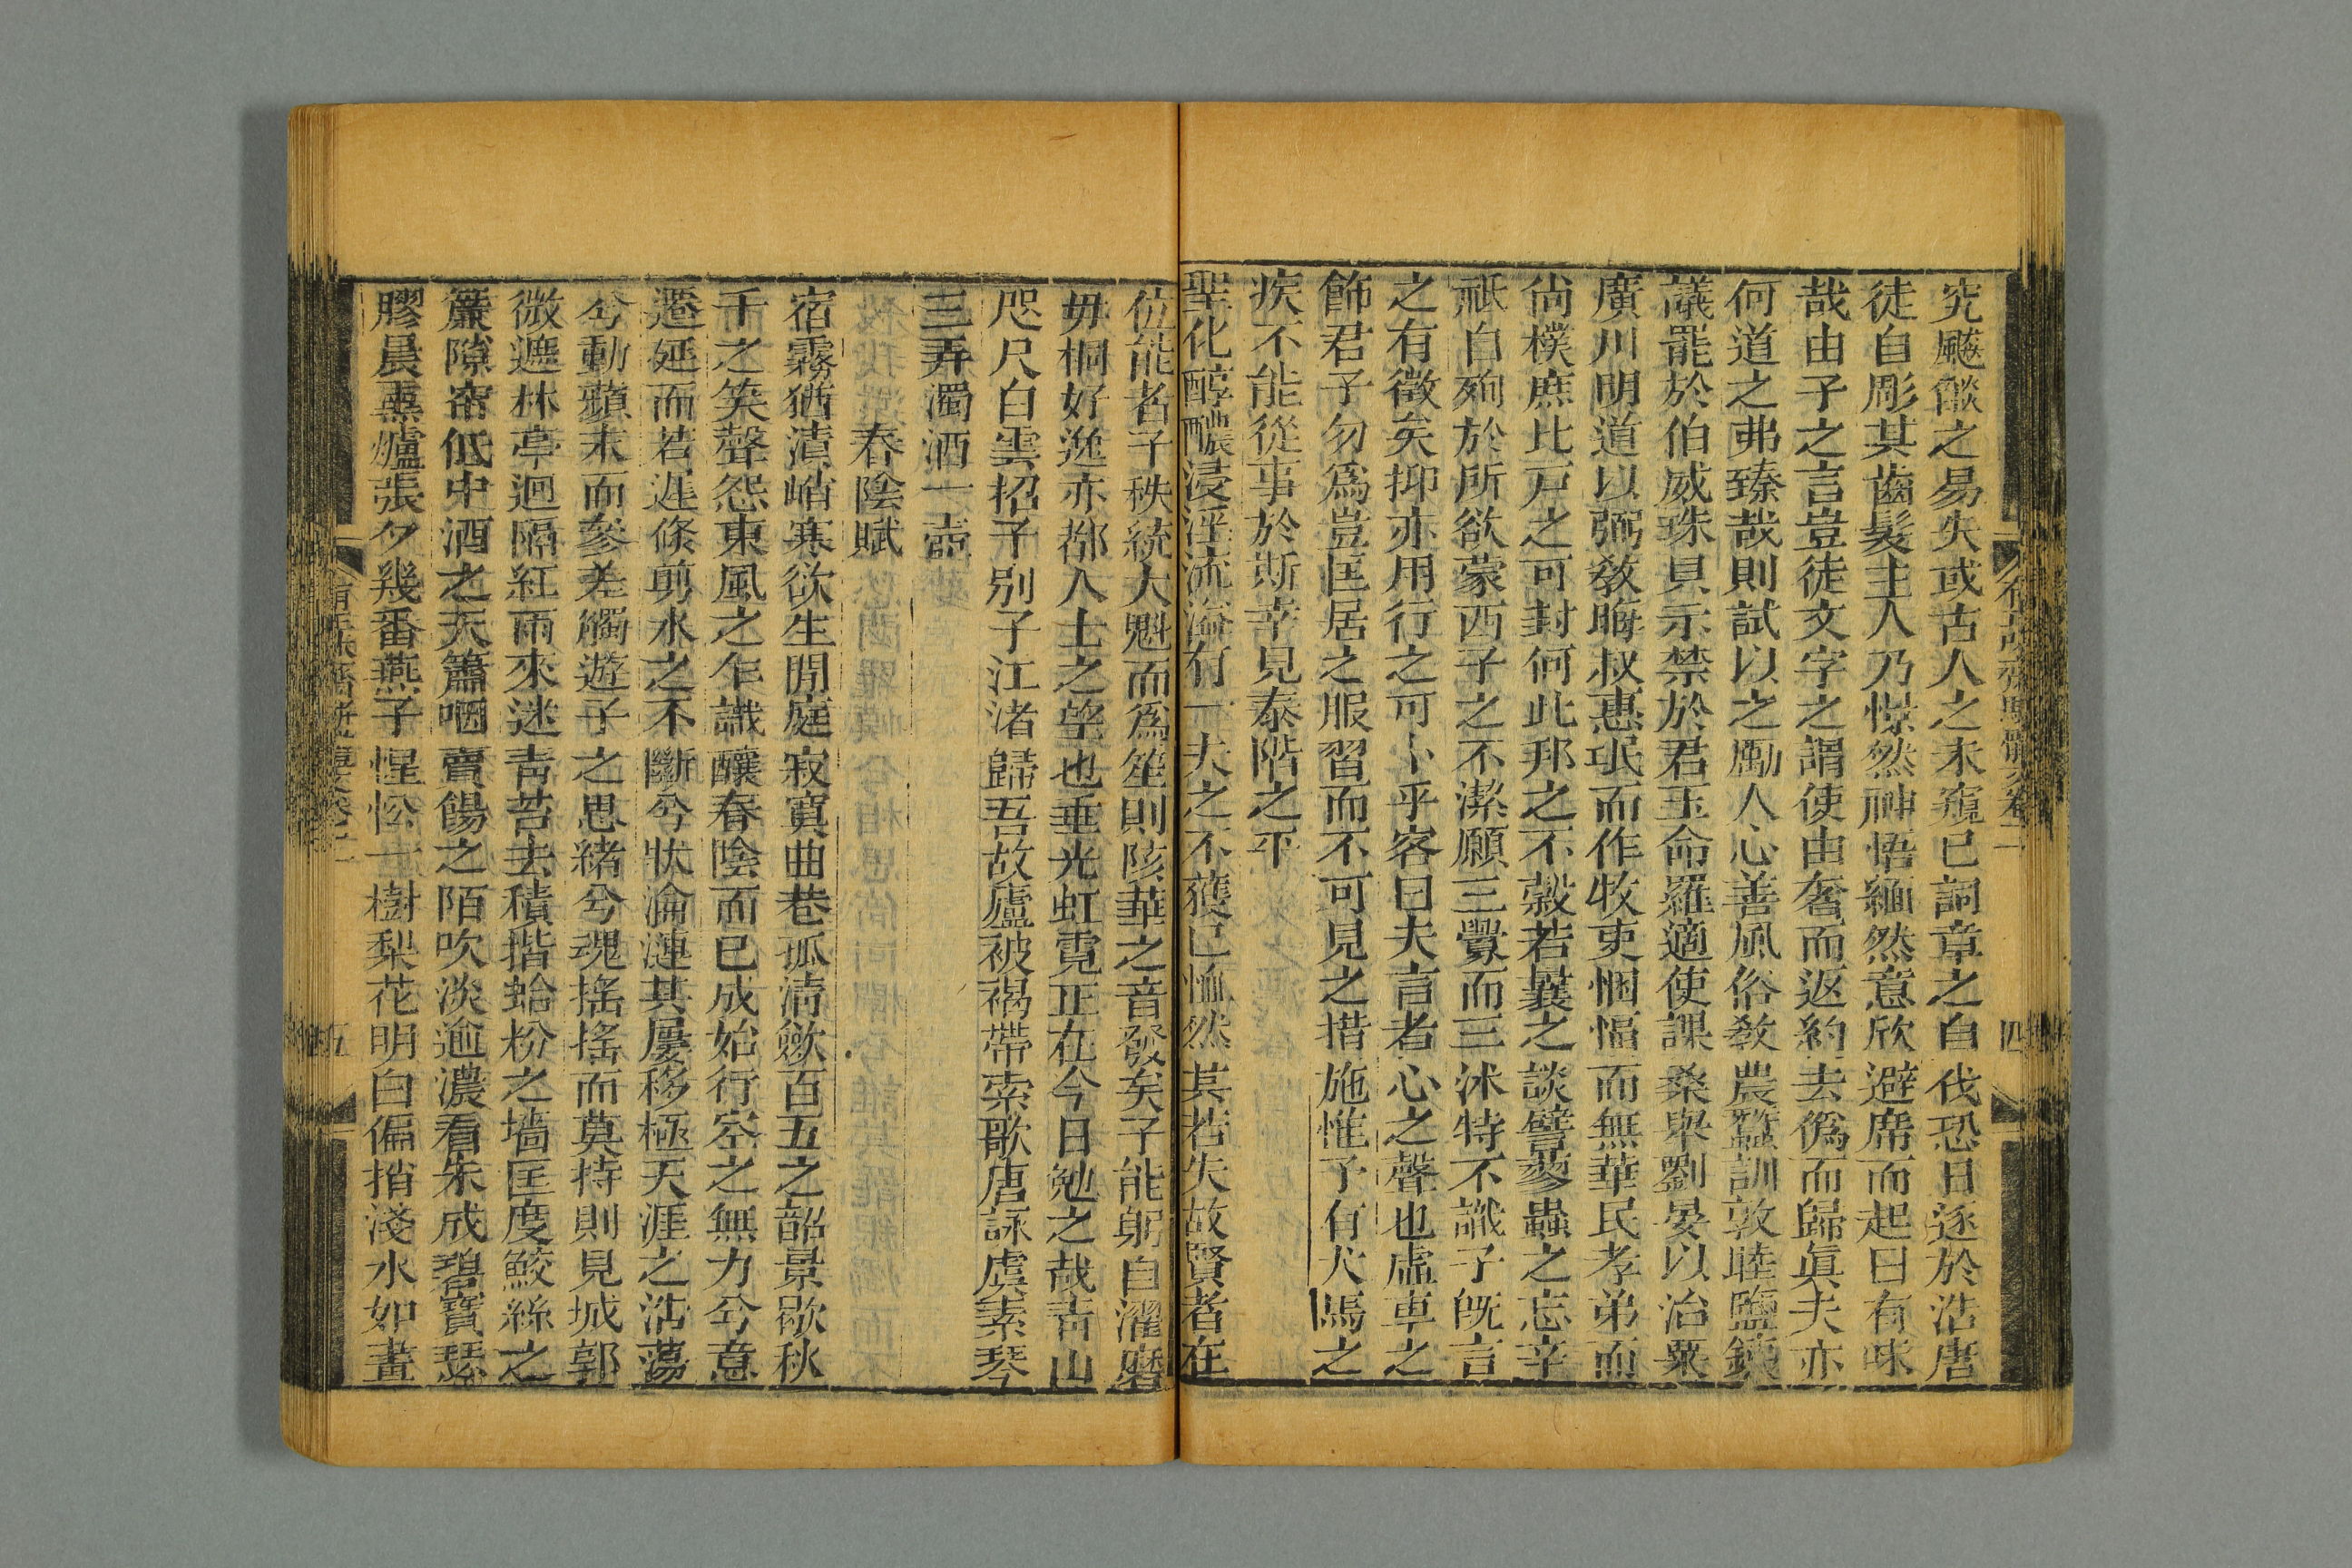 究飈燄之易失或古人之未窺已詞章之自伐恐日逐於浩唐
徒自彫其齒髮主人乃憬然神悟緬然意欣避席而起曰有味
哉由子之言豈徒文字之謂使由奢而返約去僞而歸眞夫亦
何道之弗臻哉則試以之勵人心善風俗敎農蠶訓敦睦鹽鐵
議罷於伯威珠貝示禁於君玉命羅適使課桑畢劉晏以治粟
廣川明道以弼敎晦叔惠氓而作牧吏悃愊而無華民孝弟而
尙樸庶比戸之可封何此邦之不穀若曩之談譬蓼蟲之忘辛
祇自殉於所欲蒙西子之不潔願三釁而三沐特不識子旣言
之有徵矣抑亦用行之可卜乎客曰夫言者心之聲也虛車之
飾君子勿爲豈匡居之服習而不可見之措施惟予有犬馬之
疾不能從事於斯幸見泰階之平
聖化醇醲浸淫流溢有一夫之不獲已恤然其若失故賢者在
位能者子秩統大魁而爲笙則陔華之音發矣子能躬自濯磨
毋桐好逸亦都人士之望也垂光虹霓正在今日勉之哉青山
咫尺白雲招子別子江渚歸吾故廬被褐帶索歌唐詠虞素琴
三弄濁酒一壺
春陰賦
宿霧猶濆峭寒欲生閒庭寂寞曲巷孤淸歛百五之韶景歇秋
千之笑聲怨東風之乍識釀春陰而已成始行空之無力兮意
遷延而若遲倏剪水之不斷兮狀淪漣其屢移極天涯之沾蕩
兮動蘋末而參差觸遊子之思緖兮魂搖搖而莫持則見城郭
微遮林亭迴隔紅雨來迷靑苔去積揩蛤粉之墻匡度鮫絲之
簾隙帘低中酒之天簫咽賣餳之陌吹淡逾濃看朱成碧寶瑟
膠晨熏爐張夕幾番燕子惺忪一樹梨花明白偏捎淺水如畫
四
五